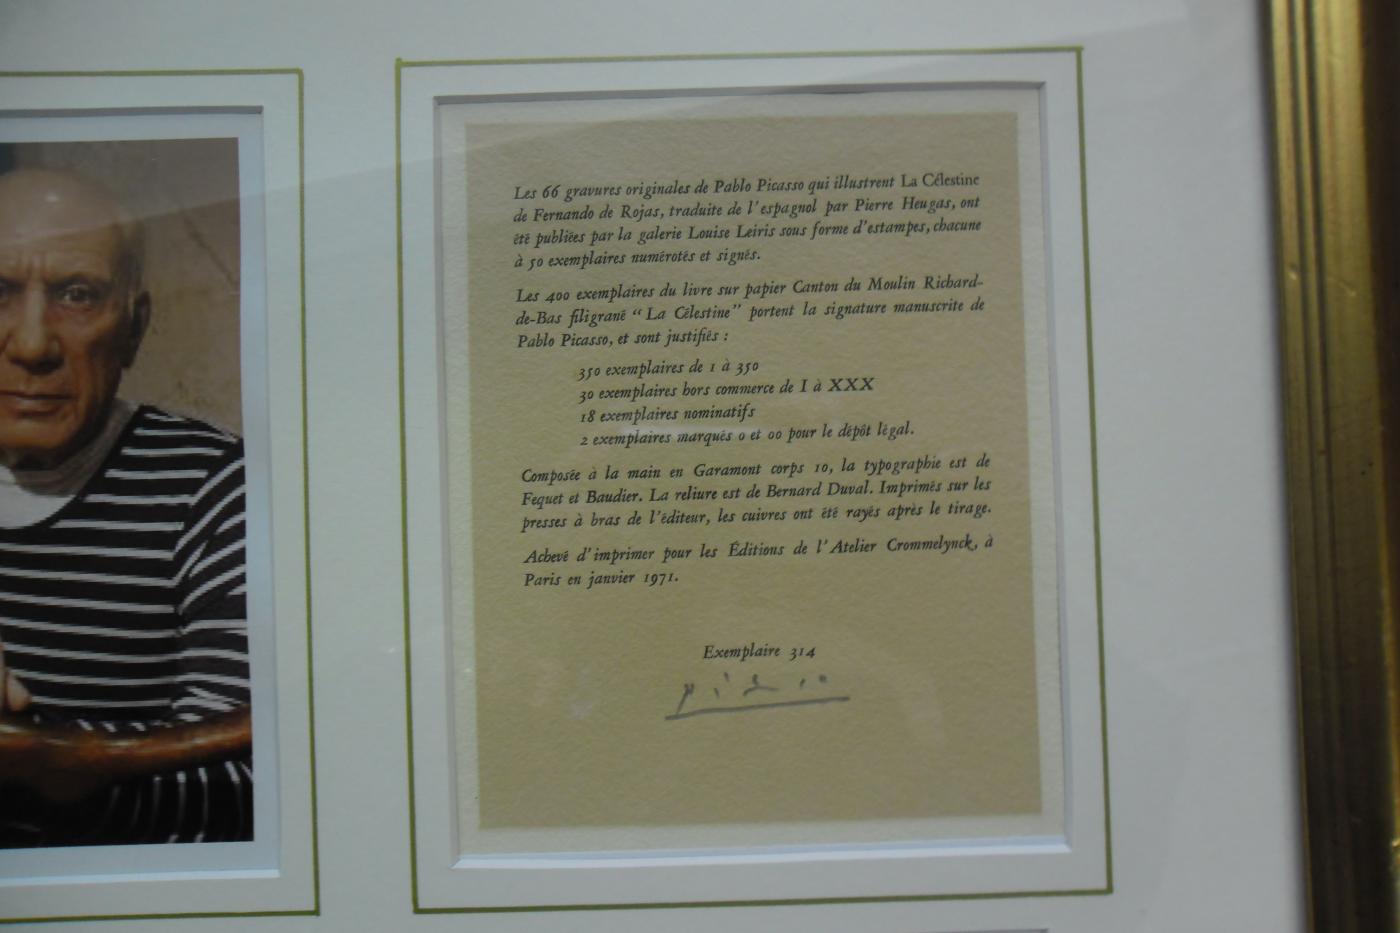 Les 66 gravures originales de Pablo Picasso qui illustrent La Célestine
de Fernando de Rojas, traduite de l'espagnol par Pierre Heugas, ont
été publiées par la galerie Louise Leiris sous forme d'estampes, chacune
à 50 exemplaires numérotés et signés.
Les 400 exemplaires du livre sur papier Canton du Moulin Richard-
de-Bas filigrané “ La Célestine ” portent la signature manuscrite de
Pablo Picasso, et sont justifiés :
350 exemplaires de 1 à 350
30 exemplaires hors commerce de I à XXX
18 exemplaires nominatifs
2 exemplaires marqués 0 et 00 pour le dépôt légal.
Composée à la main en Garamont corps 10, la typographie est de
Fequet et Baudier. La reliure est de Bernard Duval. Imprimés sur les
presses à bras de l'éditeur, les cuivres ont été rayés après le tirage.
Achevé d'imprimer pour les Éditions de l'Atelier Crommelynck, à
Paris en janvier 1971.
Exemplaire 314
Picasso